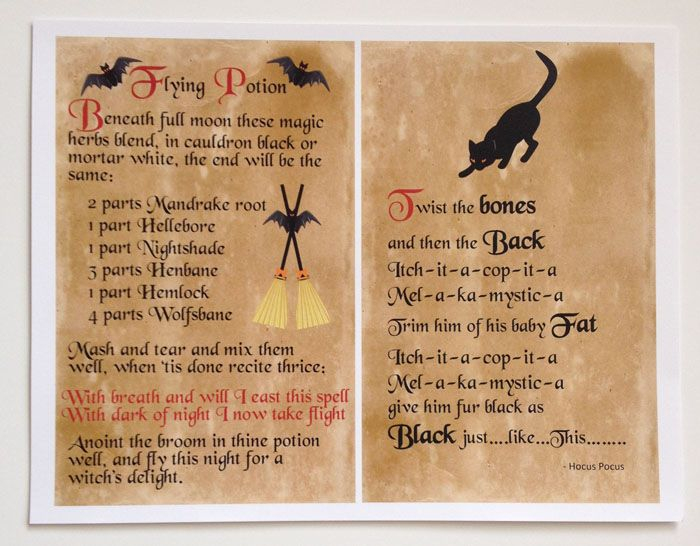 Flying Potion
Beneath full moon these magic
herbs blend, in cauldron black or
mortar white, the end will be the
same:
2 parts Mandrake root
1 part Hellebore
1 part Nightshade
3 parts Henbane
1 part Hemlock
4 parts Wolfsbane
Mash and tear and mix them
well, when 'tis done recite thrice:
With breath and will I cast this spell
With dark of night I now take flight
Anoint the broom in thine potion
well, and fly this night for a
witch's delight.
Twist the bones
and then the Back
Itch-it-a-cop-it-a
Mel-a-ka-mystic-a
Trim him of his baby Fat
Itch-it-a-cop-it-a
Mel-a-ka-mystic-a
give him fur black as
Black just....like...This........
- Hocus Pocus